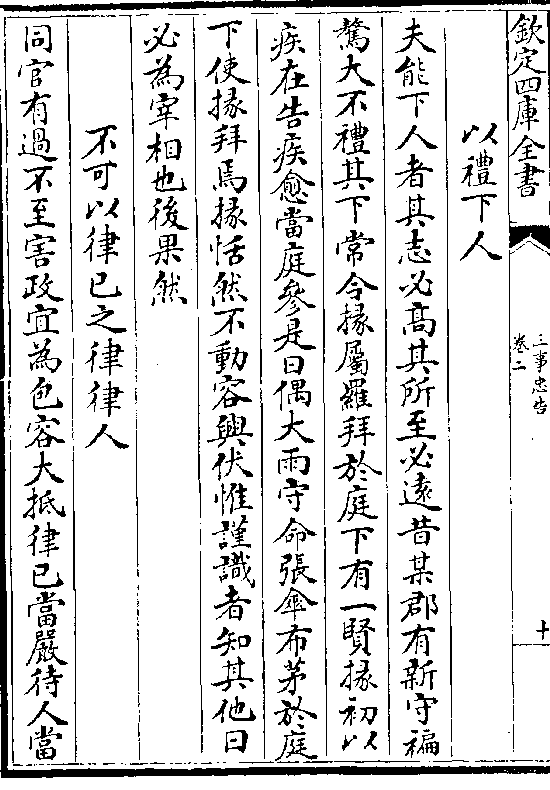 欽定四庫全書
三事忠告
卷二
十
以禮下人
夫能下人者其志必高其所至必遠昔某郡有新守褊
驁大不禮其下常令掾屬羅拜於庭下有一賢掾初以
疾在告疾愈當庭參是日偶大雨守命張傘布茅於庭
下使掾拜焉掾恬然不動容興伏惟謹識者知其他日
必為宰相也後果然
不可以律己之律律人
同官有過不至害政宜為包容大抵律己當嚴待人當